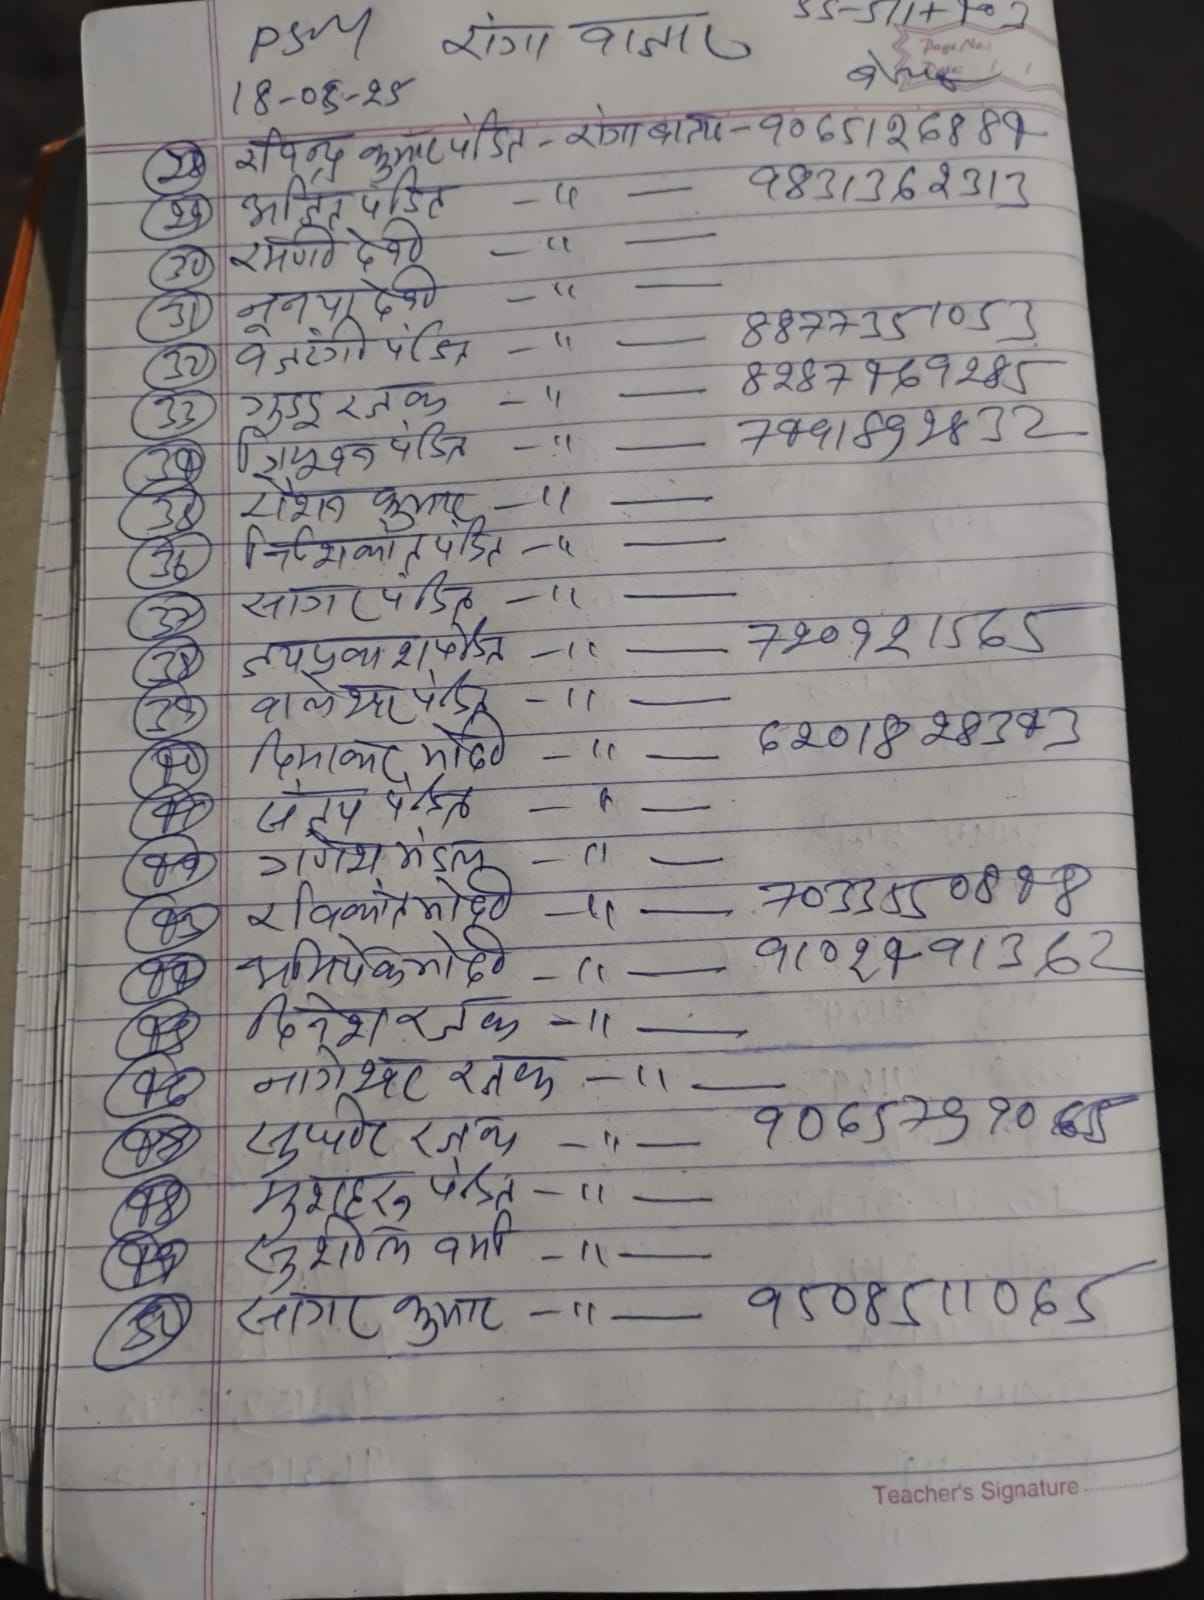 PSM रांगा बाजार
Page No.
Date
18-08-25
28 रविन्द्र कुमार पंडित - रांगा बाजार - 9065126884
29 अजित पंडित - " — 9831362313
30 रमणी देवी - " —
31 देवी - " —
32 बजरंगी पंडित - " — 8877351053
33 गुड्डू रजक - " — 8287469285
34 त्रिभुवन पंडित - " — 7491892832
35 रौशन कुमार - " —
36 निशिकांत पंडित - " —
37 सागर पंडित - " —
38 जयप्रकाश पंडित - " — 720921565
39 बालेश्वर पंडित - " —
40 दिवाकर मोदी - " — 6201828343
41 संजय पंडित - " —
42 गणेश मंडल - " —
43 रविकांत मोदी - " —
44 अभिषेक मोदी - " — 9102491362
45 दिनेश रजक - " —
46 नागेश्वर रजक - " —
47 सुधीर रजक - " —
48 पंडित - " —
49 सुशील वर्मा - " —
50 सागर कुमार - " — 9508511065
Teacher's Signature